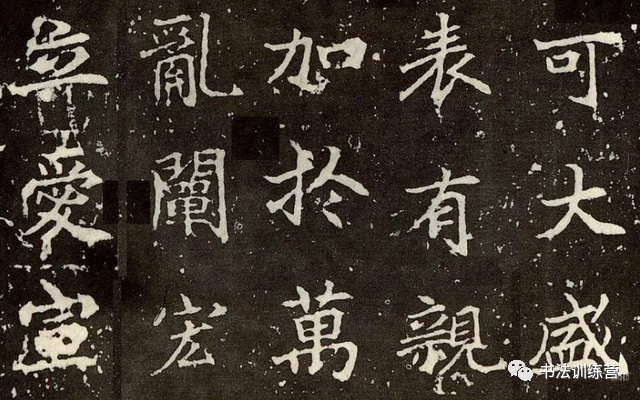 可大盛
表有親
加於萬
亂闡宏
立愛宣
书法训练营